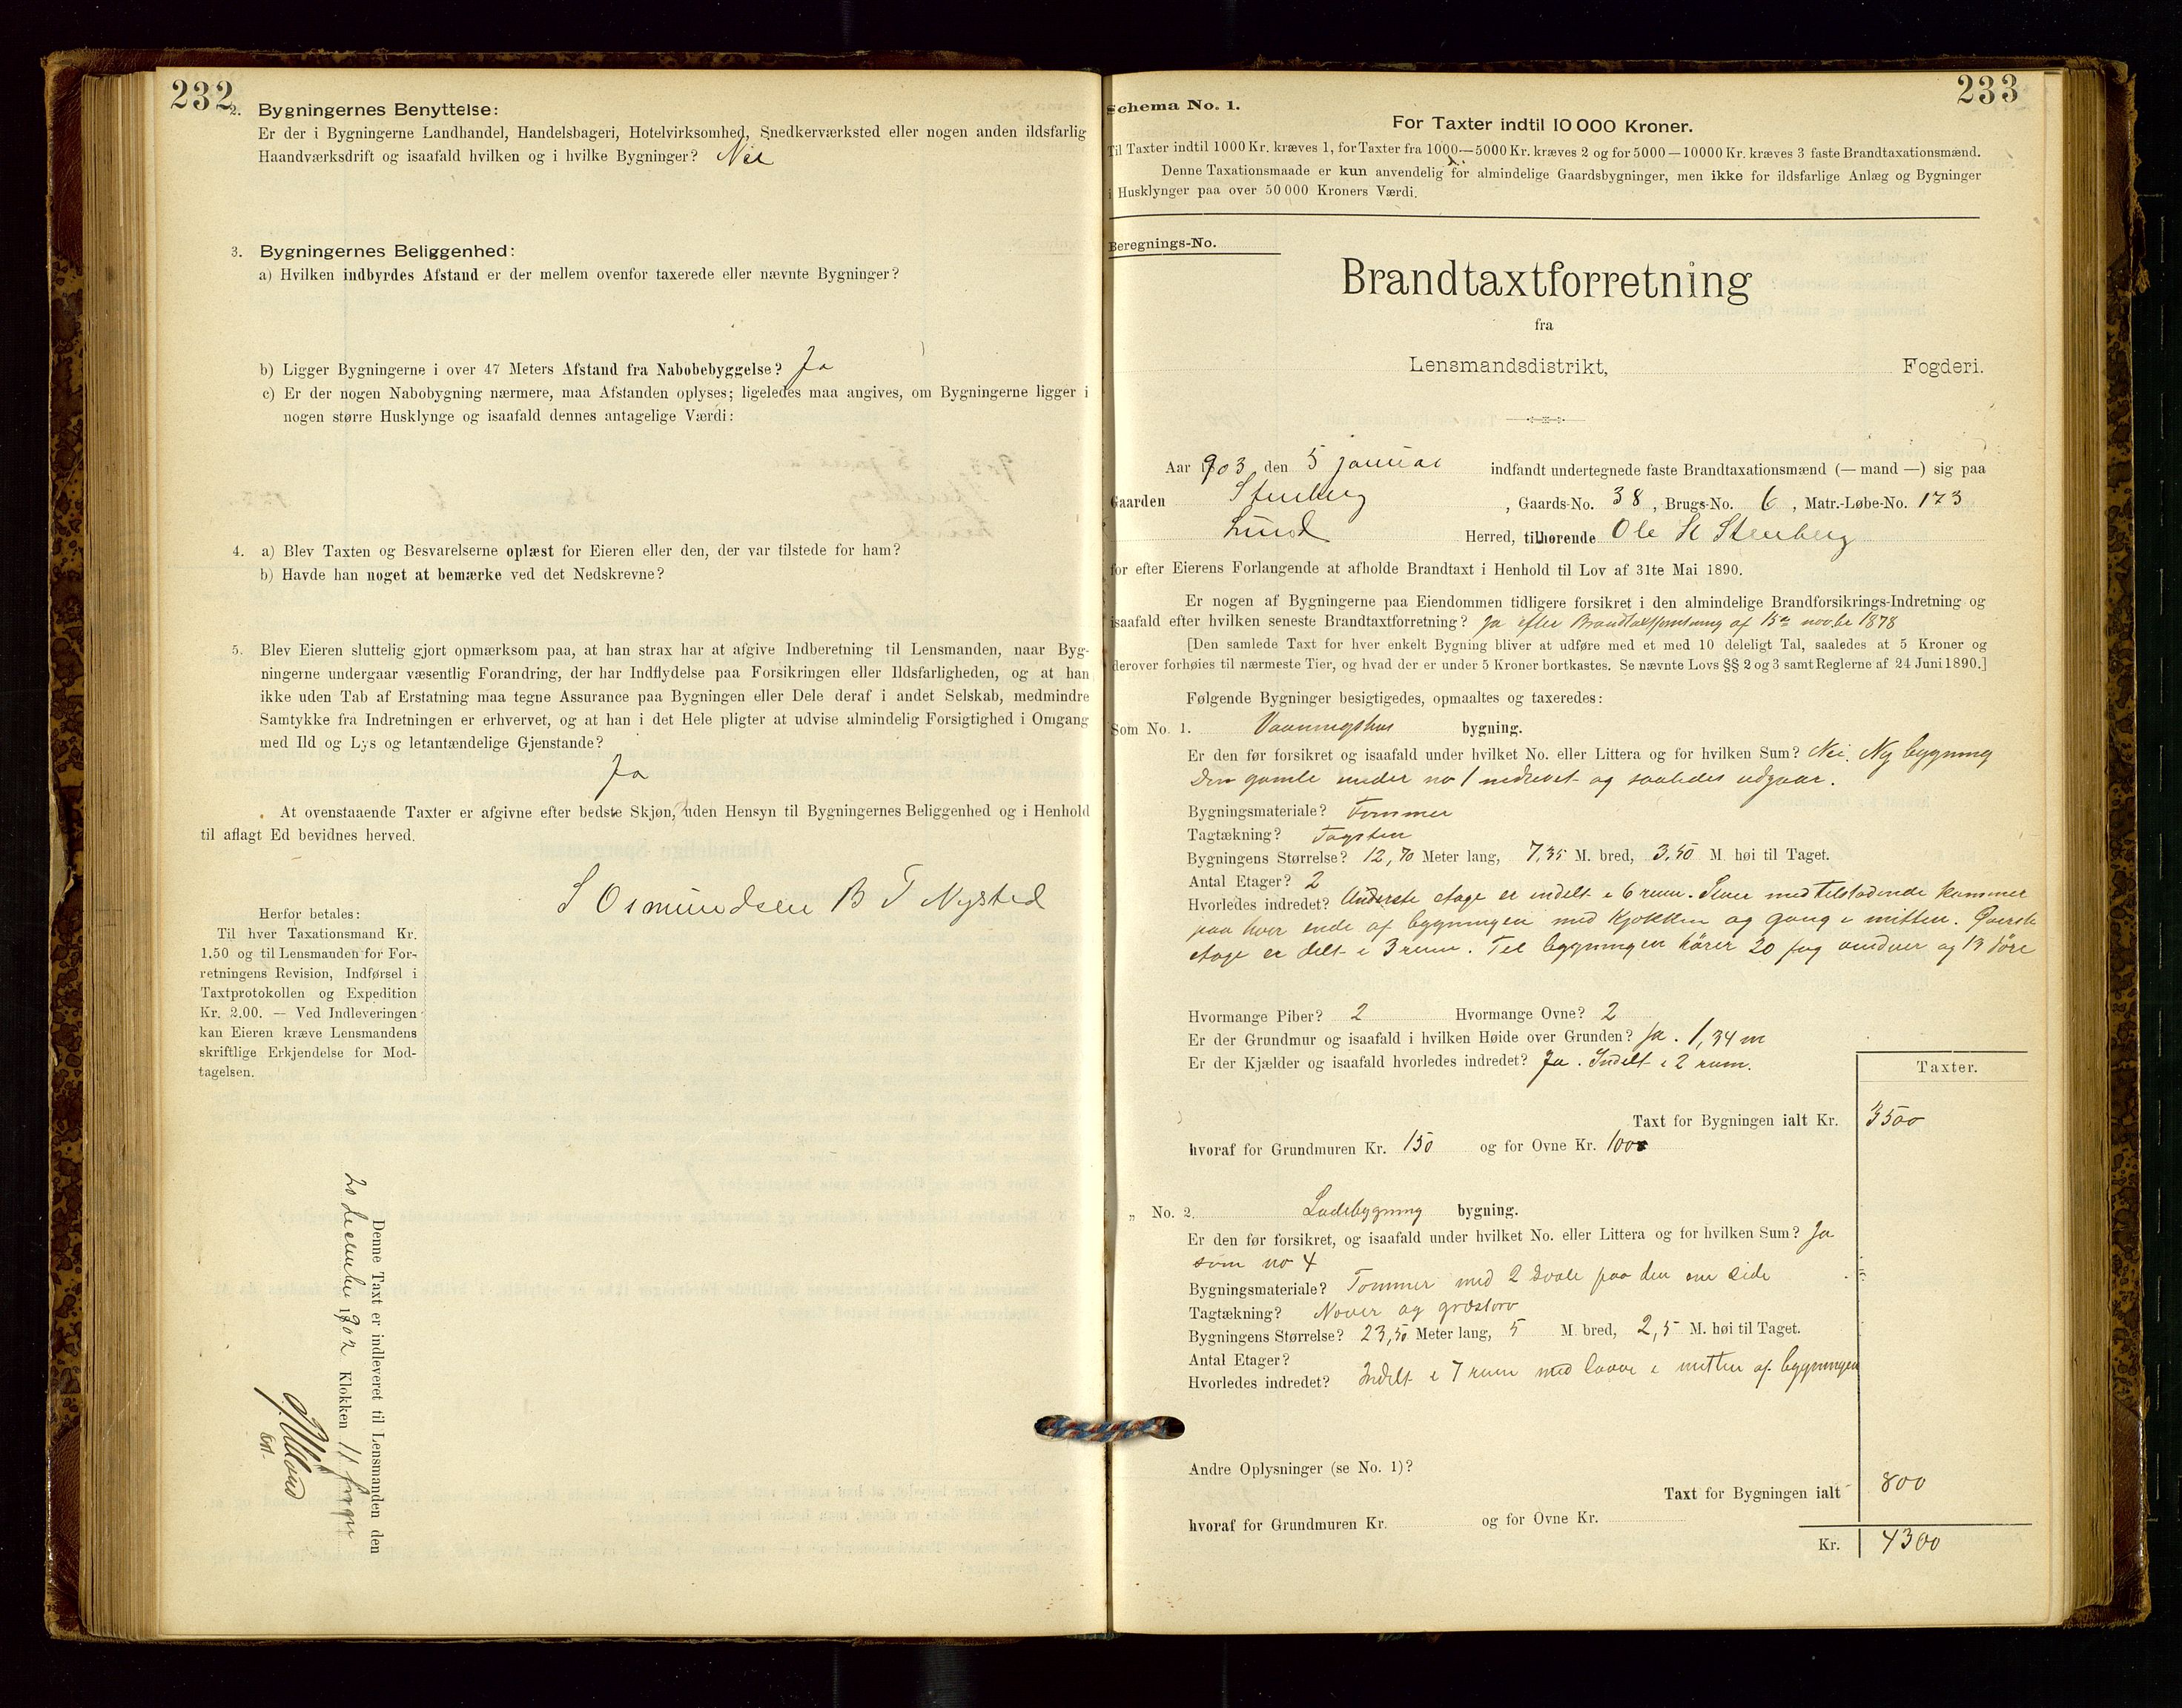 232
2. Bygningernes Benyttelse:
Er der i Bygningerne Landhandel, Handelsbageri, Hotelvirksomhed, Snedkerværksted eller nogen anden ildsfarlig
Haandværksdrift og isaafald hvilken og i hvilke Bygninger? Nei
3. Bygningernes Beliggenhed:
a) Hvilken indbyrdes Afstand er der mellem ovenfor taxerede eller nævnte Bygninger?
b) Ligger Bygningerne i over 47 Meters Afstand fra Nabobebyggelse? Ja
c) Er der nogen Nabobygning nærmere, maa Afstanden oplyses; ligeledes maa angives, om Bygningerne ligger i
nogen større Husklynge og isaafald dennes antagelige Værdi:
4. a) Blev Taxten og Besvarelserne oplæst for Eieren eller den, der var tilstede for ham?
b) Havde han noget at bemærke ved det Nedskrevne?
5. Blev Eieren sluttelig gjort opmærksom paa, at han strax har at afgive Indberetning til Lensmanden, naar Byg-
ningerne undergaar væsentlig Forandring, der har Indflydelse paa Forsikringen eller Ildsfarligheden, og at han
ikke uden Tab af Erstatning maa tegne Assurance paa Bygningen eller Dele deraf i andet Selskab, medmindre
Samtykke fra Indretningen er erhvervet, og at han i det Hele pligter at udvise almindelig Forsigtighed i Omgang
med Ild og Lys og letantændelige Gjenstande?
Ja
At ovenstaaende Taxter er afgivne efter bedste Skjøn, uden Hensyn til Bygningernes Beliggenhed og i Henhold
til aflagt Ed bevidnes herved.
S Osmundsen B T Nysted
Herfor betales:
Til hver Taxationsmand Kr.
1.50 og til Lensmanden for For-
retningens Revision, Indførsel i
Taxtprotokollen og Expedition
Kr. 2.00. — Ved Indleveringen
kan Eieren kræve Lensmandens
skriftlige Erkjendelse for Mod-
tagelsen.
Denne Taxt er indleveret til Lensmanden den
20 december 1902 Klokken 11 form
233
Schema No. 1.
For Taxter indtil 10 000 Kroner.
Til Taxter indtil 1000 Kr. kræves 1, for Taxter fra 1000—5000 Kr. kræves 2 og for 5000—10000 Kr. kræves 3 faste Brandtaxationsmænd.
Denne Taxationsmaade er kun anvendelig for almindelige Gaardsbygninger, men ikke for ildsfarlige Anlæg og Bygninger
i Husklynger paa over 50 000 Kroners Værdi.
Beregnings-No.
Brandtaxtforretning
fra
Lensmandsdistrikt, Fogderi.
Aar 1903 den 5 januar indfandt undertegnede faste Brandtaxationsmænd (— mand —) sig paa
Gaarden Stenberg, Gaards-No. 38, Brugs-No. 6, Matr.-Løbe-No. 173
Lund Herred, tilhørende Ole St Stenberg
for efter Eierens Forlangende at afholde Brandtaxt i Henhold til Lov af 31te Mai 1890.
Er nogen af Bygningerne paa Eiendommen tidligere forsikret i den almindelige Brandforsikrings-Indretning og
isaafald efter hvilken seneste Brandtaxtforretning? Ja efter Brandtaxtforretning af 15de novbr 1878
[Den samlede Taxt for hver enkelt Bygning bliver at udføre med et med 10 deleligt Tal, saaledes at 5 Kroner og
derover forhøies til nærmeste Tier, og hvad der er under 5 Kroner bortkastes. Se nævnte Lovs §§ 2 og 3 samt Reglerne af 24 Juni 1890.]
Følgende Bygninger besigtigedes, opmaaltes og taxeredes:
Som No. 1. Vaaningshus bygning.
Er den før forsikret og isaafald under hvilket No. eller Littera og for hvilken Sum? Nei. Ny bygning
Den gamle under no 1 nedrevet og saaledes udgaar.
Bygningsmateriale? Tømmer
Tagtækning? Tagsten
Bygningens Størrelse? 12,70 Meter lang, 7,35 M. bred, 3,50 M. høi til Taget.
Antal Etager? 2
Hvorledes indredet? Underste etage er indelt i 6 rum. Stuer med tilstødende kammer
paa hver ende af bygningen med kjøkken og gang i mitten. Øverste
etage er delt i 3 rum. Til bygningen hører 20 fag vinduer og 13 döre
Hvormange Piber? 2 Hvormange Ovne? 2
Er der Grundmur og isaafald i hvilken Høide over Grunden? Ja. 1,34 m
Er der Kjælder og isaafald hvorledes indredet? Ja. Indelt i 2 rum.
Taxter.
Taxt for Bygningen ialt Kr. 3500
hvoraf for Grundmuren Kr. 150 og for Ovne Kr. 100
„ No. 2. Ladebygning bygning.
Er den før forsikret, og isaafald under hvilket No. eller Littera og for hvilken Sum? Ja
som no 4
Bygningsmateriale? Tømmer med 2 svale paa den ene side
Tagtækning? Never og græstorv
Bygningens Størrelse? 23,50 Meter lang, 5 M. bred, 2,5 M. høi til Taget.
Antal Etager?
Hvorledes indredet? Indelt i 7 rum med laave i mitten af bygningen
Andre Oplysninger (se No. 1)?
Taxt for Bygningen ialt 800
hvoraf for Grundmuren Kr. og for Ovne Kr.
Kr. 4300